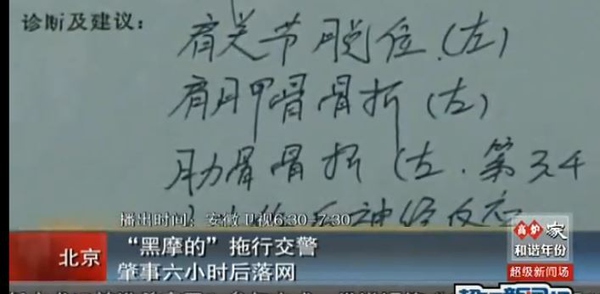 诊断及建议：
肩关节脱位（左）
肩胛骨骨折（左）
肋骨骨折（左．第3.4
神经反应
播出时间：安徽卫视6:30-7:30
北京
“黑摩的”拖行交警
肇事六小时后落网
高炉家
和谐年份
超级新闻场